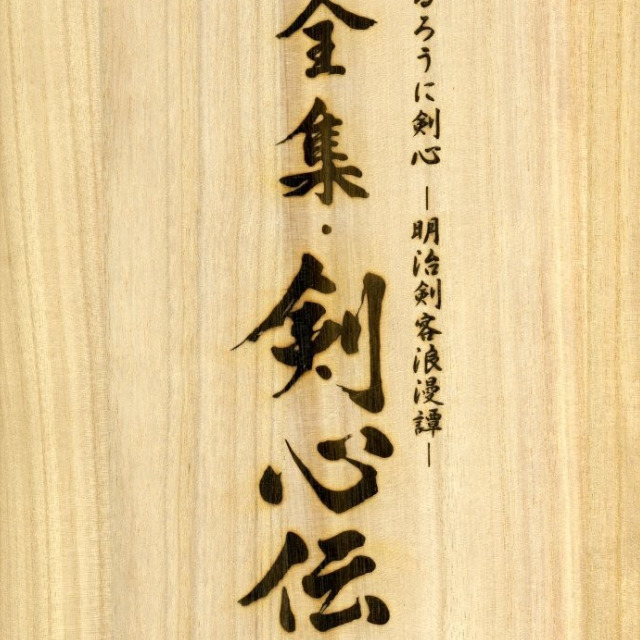 るろうに剣心 ー明治剣客浪漫譚ー
全集・剣心伝